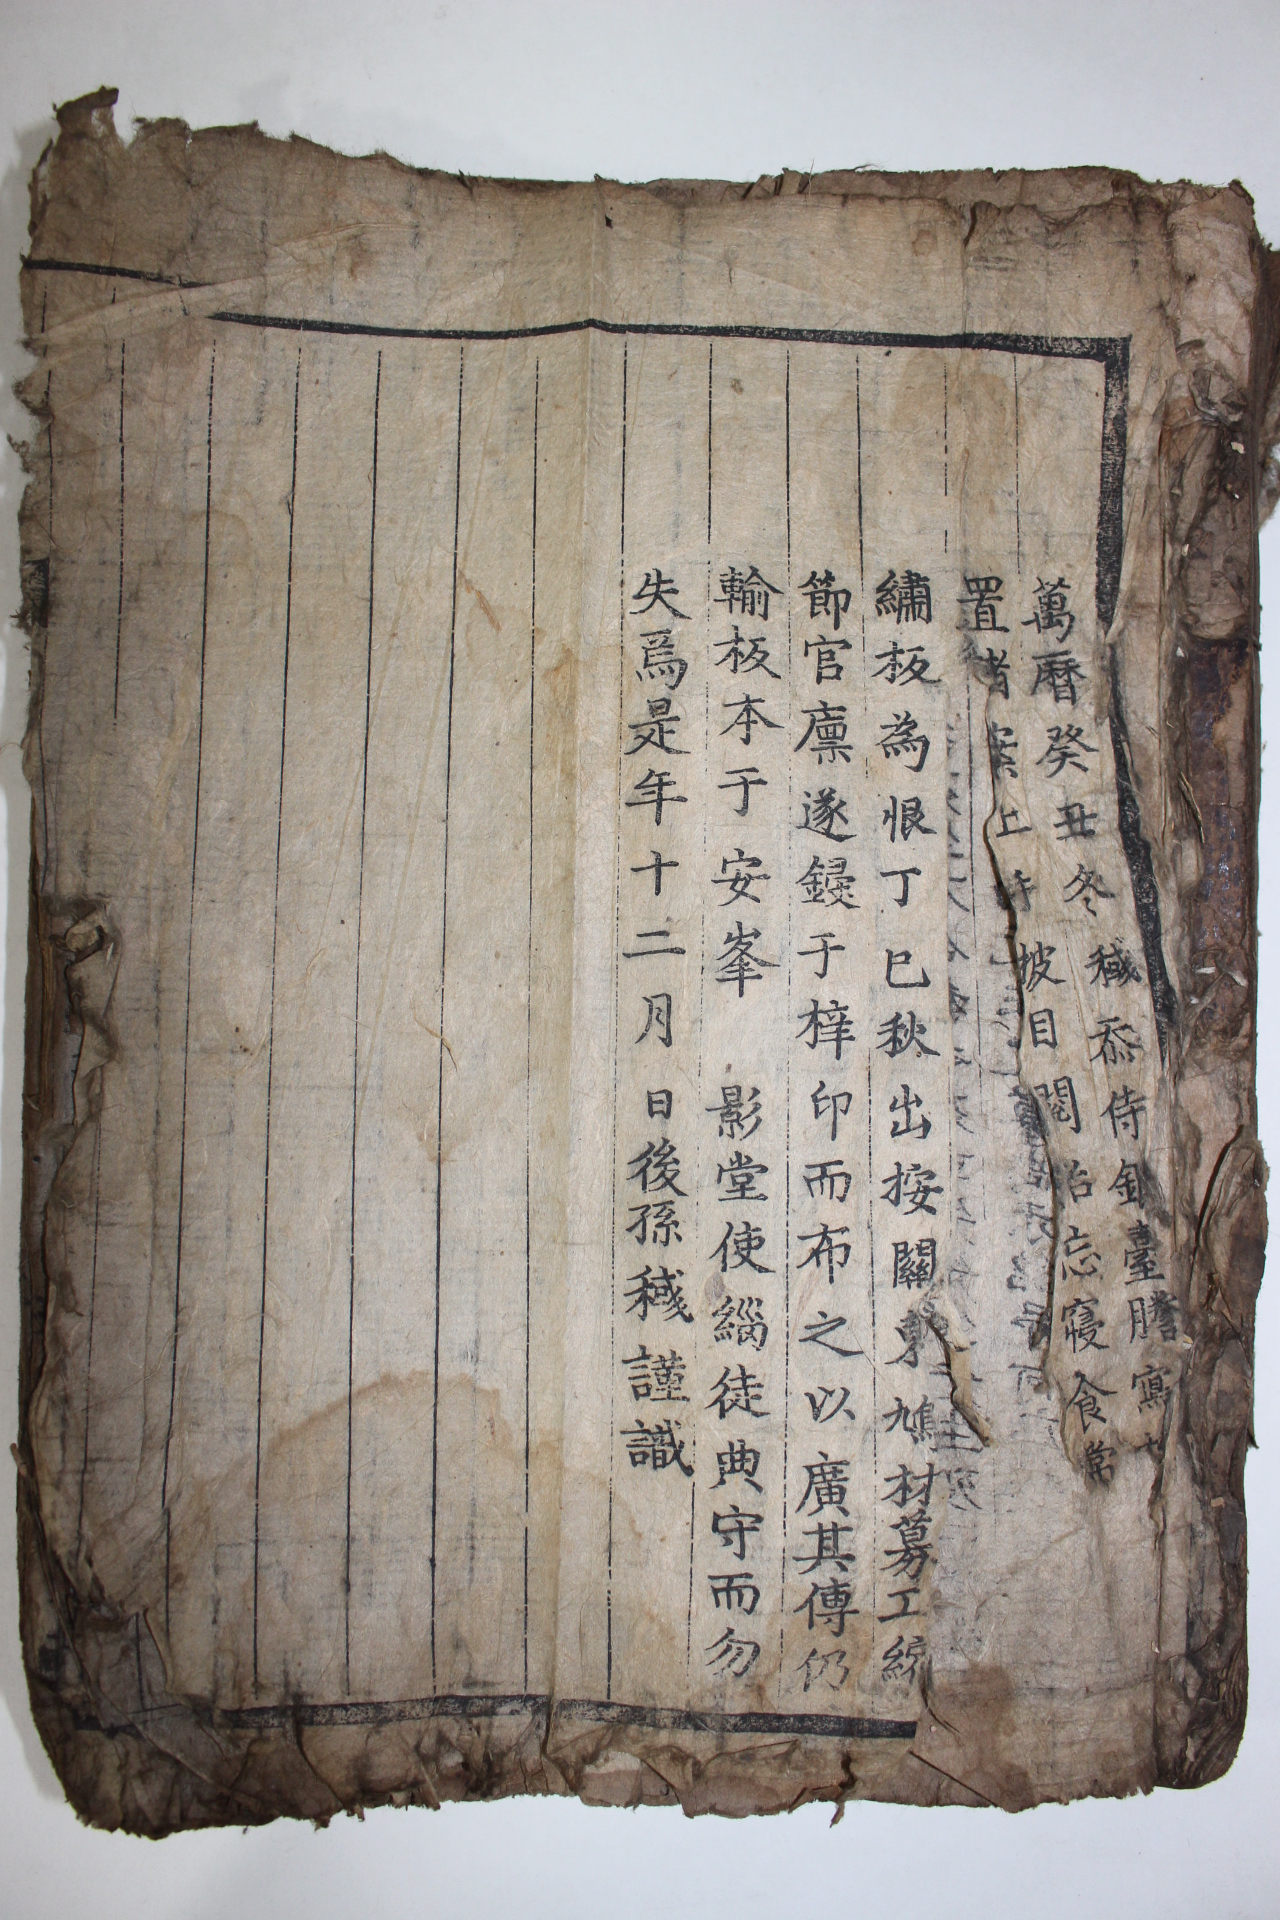 萬曆癸丑冬稶忝侍銀臺謄寫
置諸案上時披目閱殆忘寢食常
繡板為恨丁巳秋出按關東鳩材募工
節官廩遂鋟于梓印而布之以廣其傳仍
輸板本于安峯 影堂使緇徒典守而勿
失焉是年十二月 日後孫稶謹識